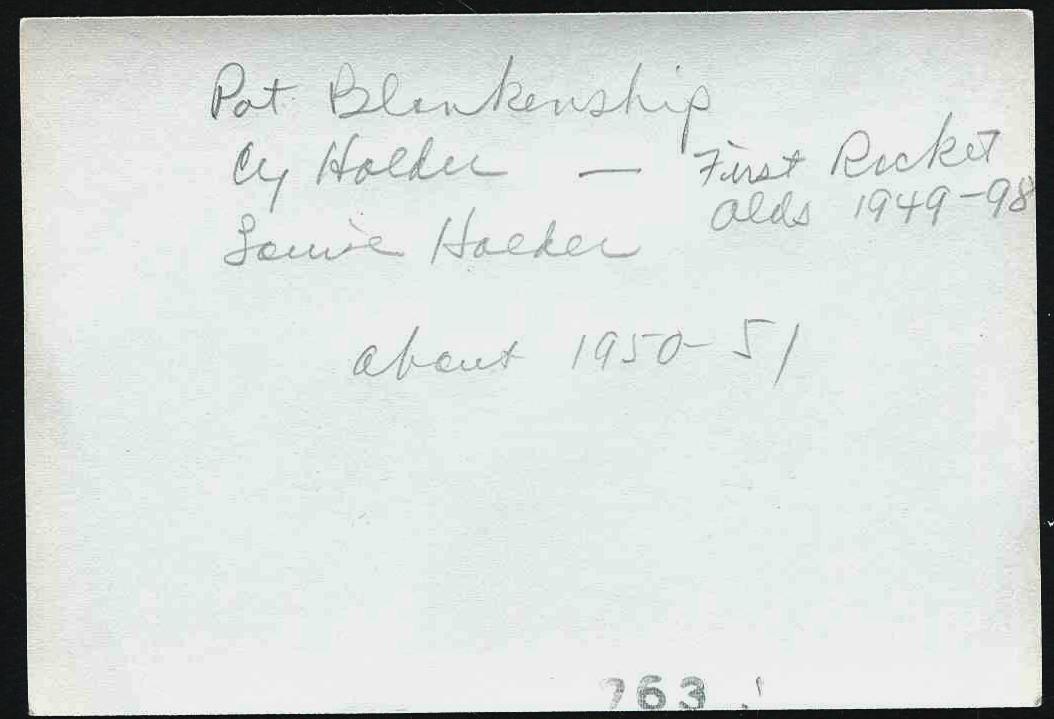 Pat Blankenship
Cy Holder — First Rocket
Olds 1949-98
Louise Holder
about 1950-51
763